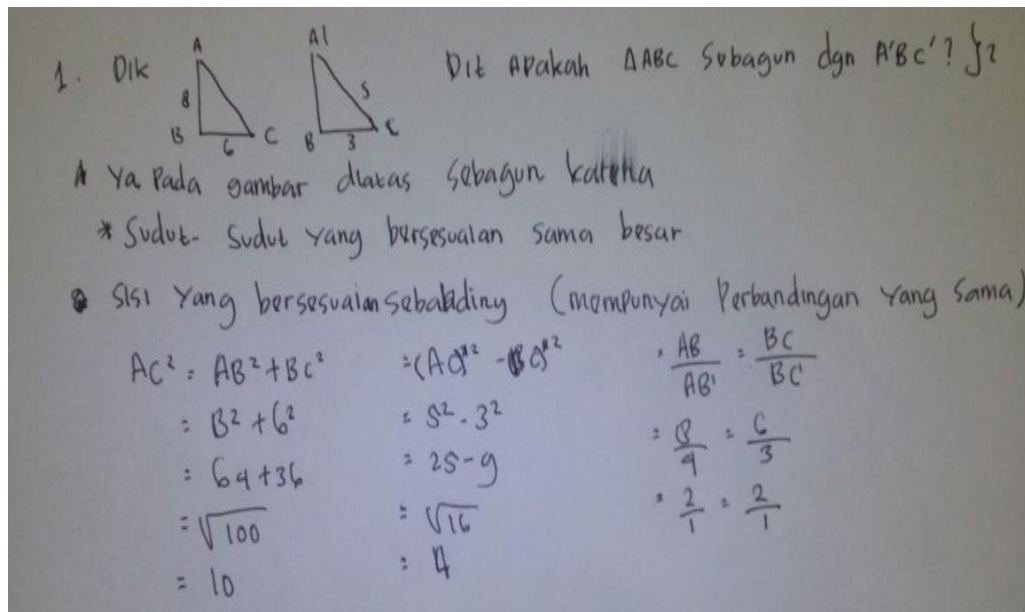 1. Dik A 8 B 6 C A1 5 B 3 C Dit Apakah ΔABC Sebagun dgn A'BC'? }2
A Ya Pada gambar diatas Sebagun karena
* Sudut- Sudut yang bersesuaian sama besar
Sisi Yang bersesuaian Sebabding (mempunyai Perbandingan Yang Sama)
AC² = AB² + BC²
= B² + 6²
= 64 + 36
= √100
= 10
= (AC)''² - (BC)''²
= 5² - 3²
= 25 - 9
= √16
= 4
= AB/AB' = BC/BC'
= 8/4 = 6/3
= 2/1 = 2/1